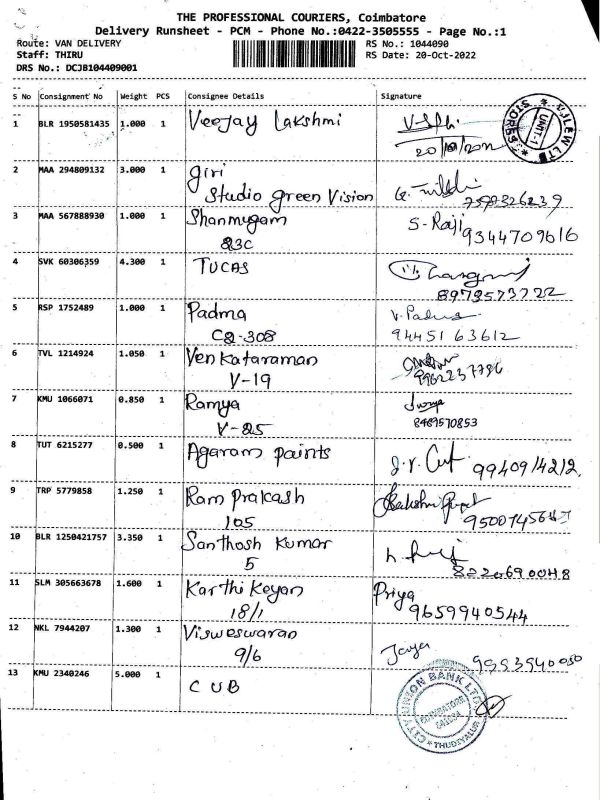 THE PROFESSIONAL COURIERS, Coimbatore
Delivery Runsheet - PCM - Phone No.:0422-3505555 - Page No.:1
Route: VAN DELIVERY RS No.: 1044090
Staff: THIRU RS Date: 20-Oct-2022
DRS No.: DCJB104409001
S No Consignment No Weight PCS Consignee Details Signature
1 BLR 1950581435 1.000 1 Veejay Lakshmi
STORES UNIT-1
2 MAA 294809132 3.000 1 Giri
Studio green Vision
3 MAA 567888930 1.000 1 Shanmugam S. Raji
83C 9344709616
4 SVK 60306359 4.300 1 TUCAS
8973573722
5 RSP 1752489 1.000 1 Padma V. Padma
C2-308 94451 63612
6 TVL 1214924 1.050 1 Venkataraman
V-19
7 KMU 1066071 0.850 1 Ramya
V-25 8489570853
8 TUT 6215277 0.500 1 Agaram paints
9940914212
9 TRP 5779858 1.250 1 Ram prakash
105
10 BLR 1250421757 3.350 1 Santhosh Kumar
5 8220690048
11 SLM 305663678 1.600 1 Karthikeyan Priya
18/1 9659940544
12 NKL 7944207 1.300 1 Visweswaran
9/6
13 KMU 2340246 5.000 1 CUB
CITY UNION BANK LTD
THUDIYALUR